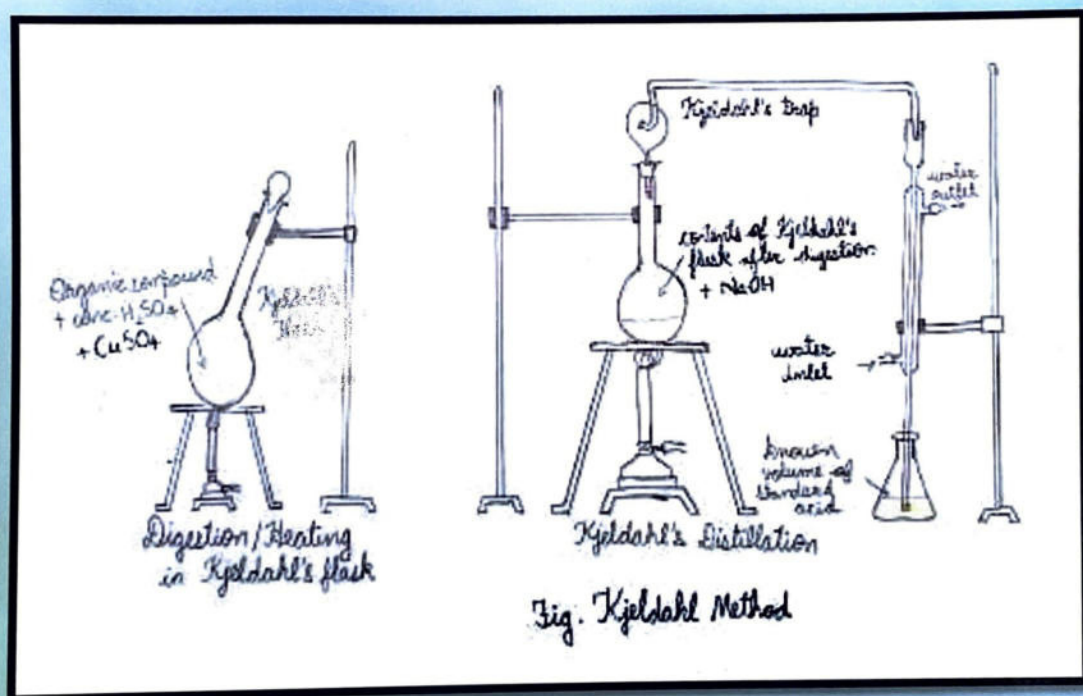 Organic compound
+ conc. H2SO4
+ CuSO4
Kjeldahl's
flask
Digestion/Heating
in Kjeldahl's flask
Kjeldahl's trap
water
outlet
contents of Kjeldahl's
flask after digestion
+ NaOH
water
inlet
known
volume of
standard
acid
Kjeldahl's Distillation
Fig. Kjeldahl Method